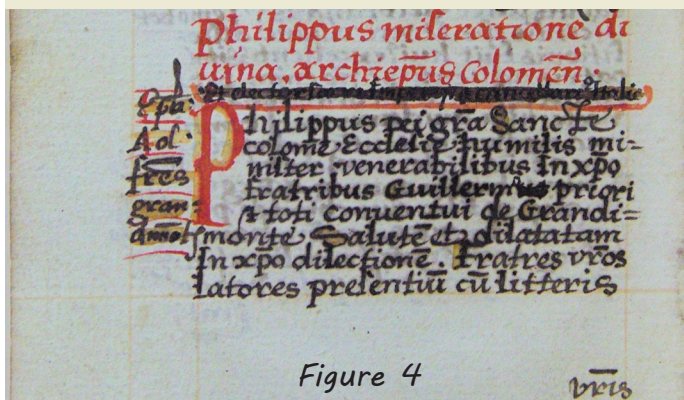 Philippus miseratione di
uina, archiep̄us Colomeñ.
Ep̄la
Ad.
fr̄es
gran
dimōt
Philippus dei gr̄a Sancte
colomē Ecclesie humilis mi=
nister venerabilibus In xp̄o
fratribus Guillermus priori
& toti conuentui de Grandi=
monte Salutē et dilatatam
In xp̄o dilectionē. fratres vr̄os
latores presentiū cū litteris
vr̄is
Figure 4